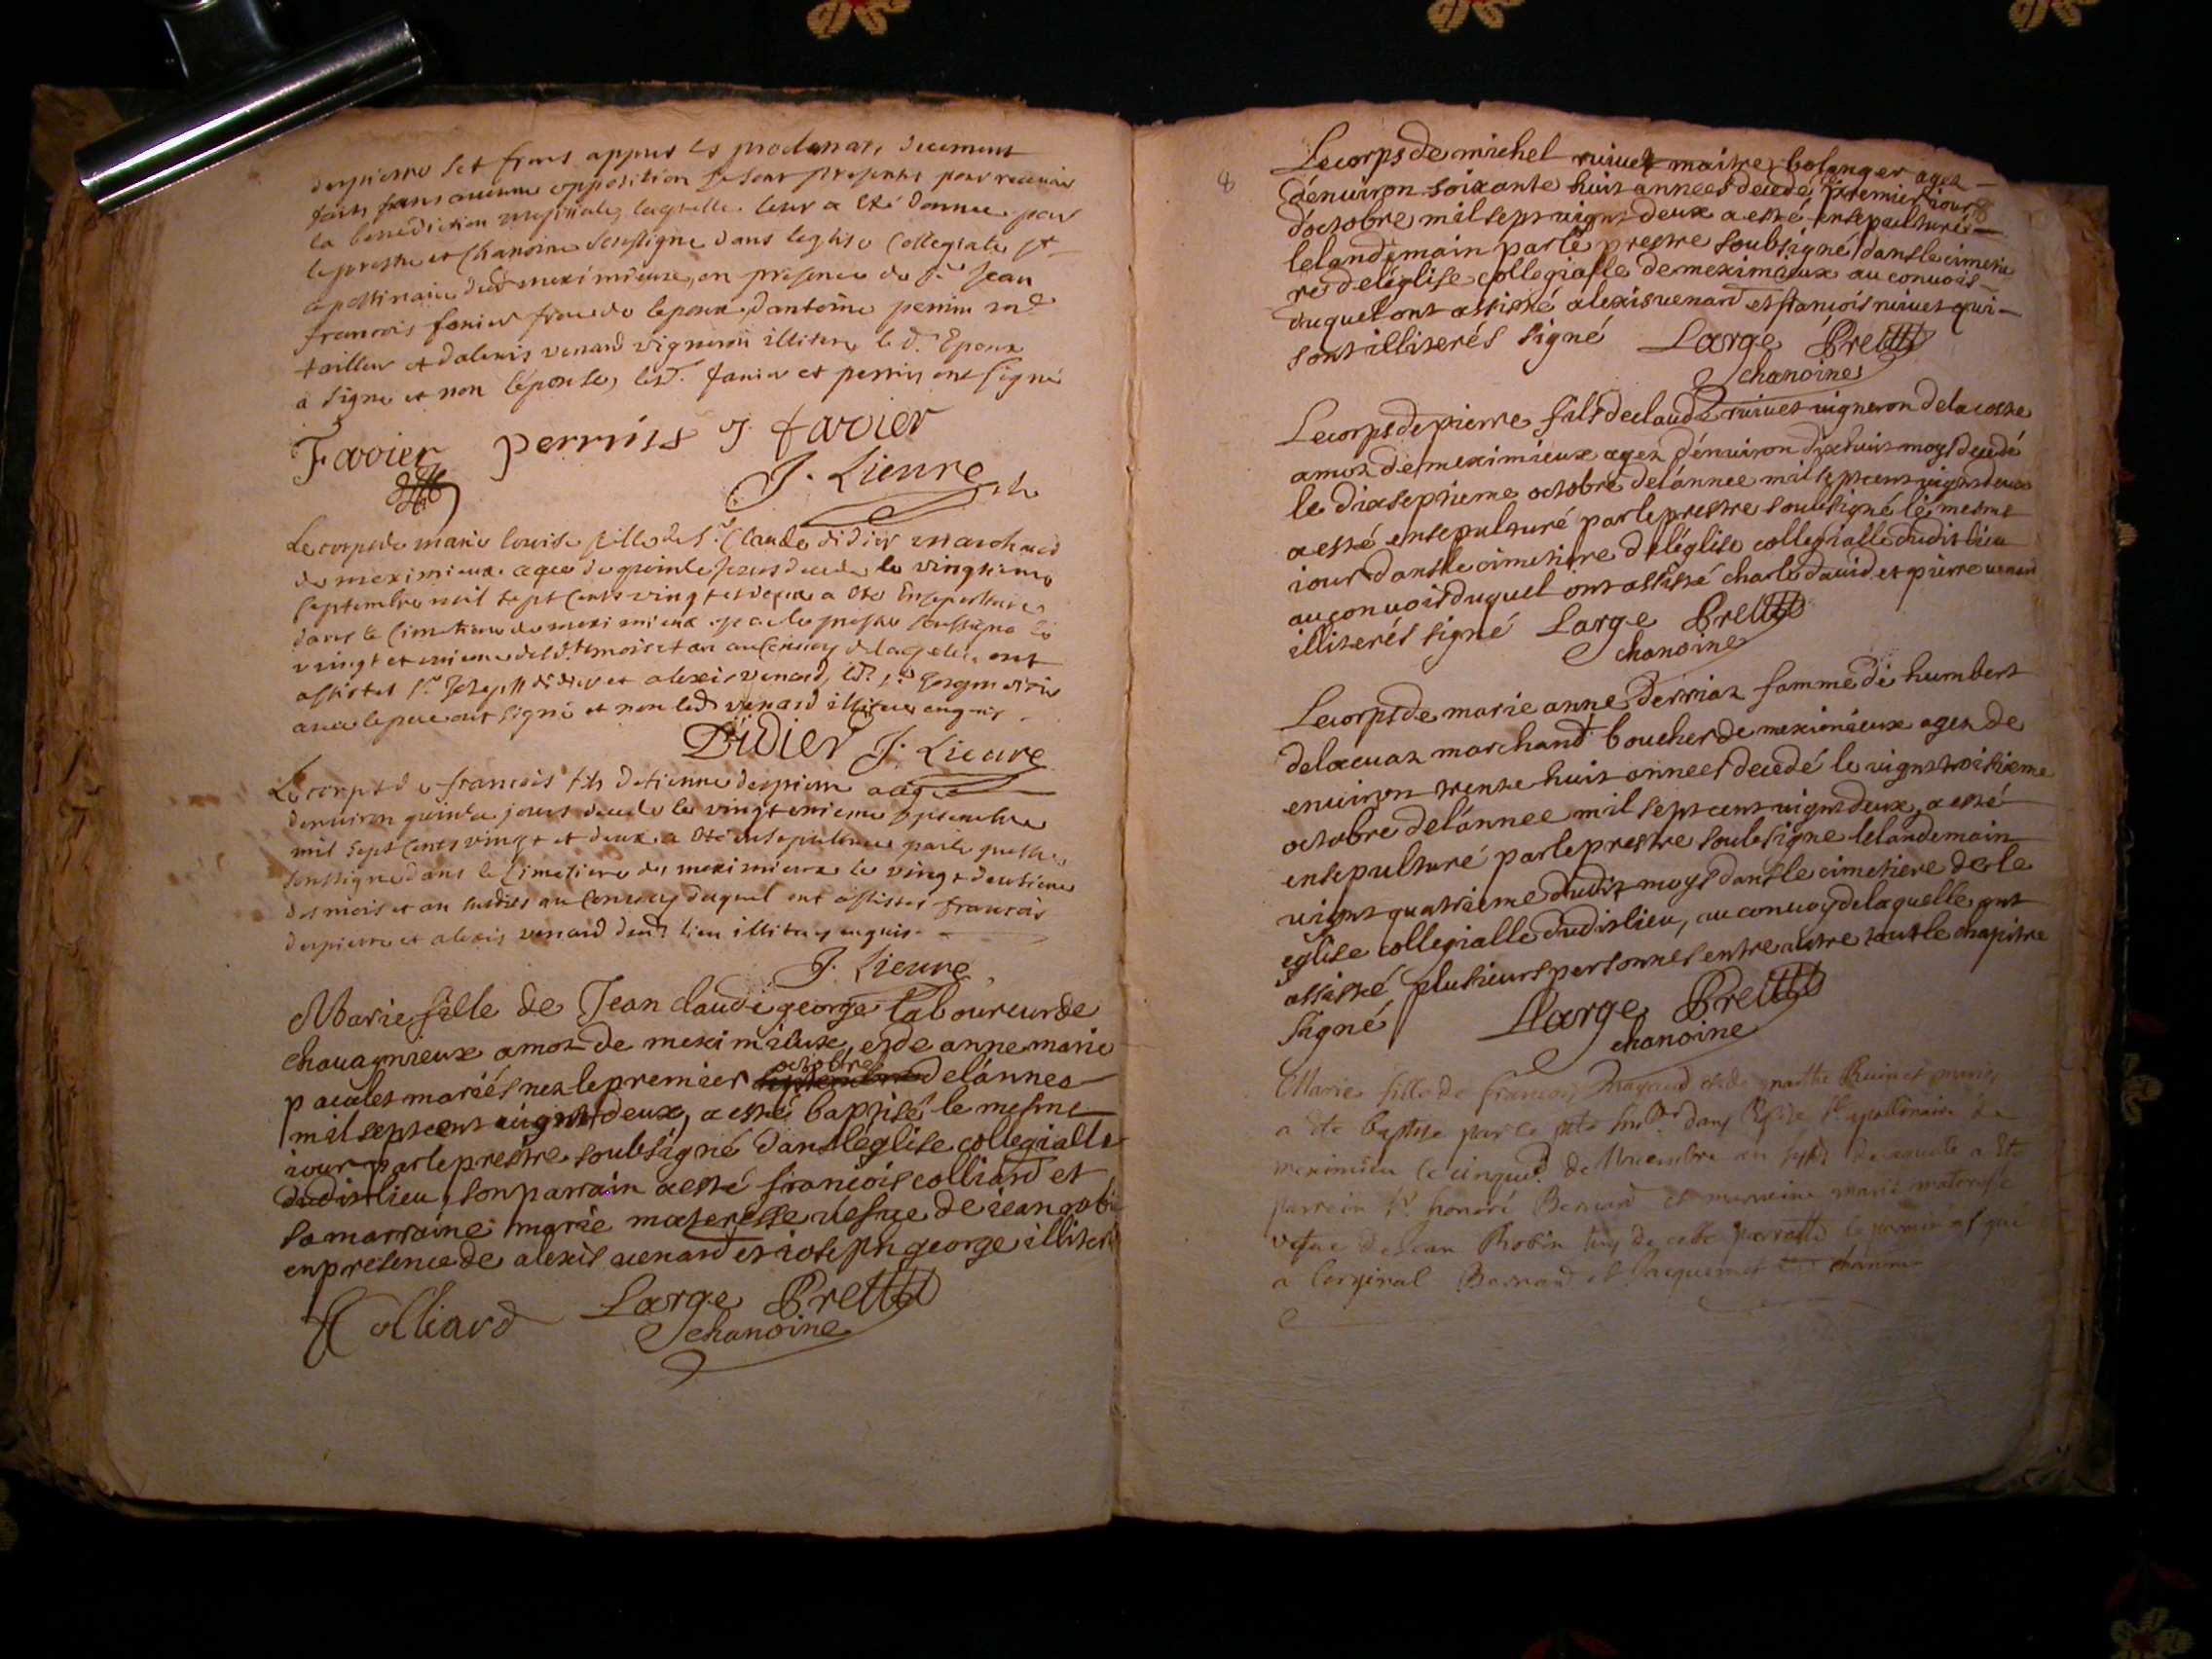 despierre set freres appres les proclamations deuement
faites sans aucune opposition se sont presentés pour recevoir
la benediction nuptiale, laquelle leur a été donnée par
le prestre et Chanoine soussigné dans leglise Collegiale St
apollinaire dud. meximieux, en presence de Sr Jean
francois favier frere de lepoux, dantoine perrin md
tailleur et dalexis venard vigneron illiteré le d. Epoux
a signé et non lépouse, lesd. favier et perrin ont signé
Favier perrins J. favier
J. Lieure
Le corps de marie louise fille de Sr Claude didier marchand
de meximieux agée de quinze jours decedée le vingtieme
septembre mil sept cents vingt et deux a été Ensepulturée
dans le Cimetiere de meximieux par le prestre soussigné le
vingt et unieme desd. mois et an au Convoy de laquelle ont
assistés Sr Joseph didier et alexis venard, led. Sr
avec le pere ont signé et non led. venard illiteré enquis
Didier J. Lieure
Le corps de francois fils detienne despierre aagé
denviron quinze jours decedé le vingt unieme septembre
mil sept Cents vingt et deux a été ensepulturé par le prestre
soussigné dans le Cimetiere de meximieux le vingt deuxieme
des mois et an susdits au Convoy duquel ont assistés francois
despierre et alexis venard dud. lieu illiterés enquis
J. Lieure
Marie fille de Jean claude george laboureur de
chavagnieux amoz de meximieux, et de anne marie
pacalet mariés nez le premier octobre delánnee
mil sept cent vignt deux, a esté baptisé le mesme
iour par le prestre soubsigné dans léglise collegialle
dudit lieu, son parrain a esté francois colliard et
sa marraine marie materesse vefue de iean robin
en presence de alexis venard et ioseph george illiteré
Colliard Large Pretre
chanoine
8
Le corps de michel riuiet maitre bolanger agez
dénuiron soixante huit annees decedé le premier iour
d'octobre mil sept vignt deux a esté ensepulturé
le landemain par le prestre soubsigné dans le cimetie
re de léglise collegialle de meximieux au conuois
duquel ont assisté alexis venard et francois riuiet qui
sont illiterés signé Large Pretre
chanoine
Le corps de pierre fils de claude riuiet uigneron de la coste
amoz de meximieux agez dénuiron dixhuit moys decedé
le dixseptieme octobre de lánnee mil sept cent vignt deux
a esté ensepulturé par le prestre soubsigné le mesme
iour dans le cimetiere de léglise collegialle dudit lieu
au conuois duquel ont assisté charle dauid et pierre venard
illiterés signé Large Pretre
chanoine
Le corps de marie anne Derriaz famme de humbert
delaeuaz marchand boucher de meximieux agez de
enuiron trente huit annees decedé le vignt troisieme
octobre de lánnee mil sept cent vignt deux, a esté
ensepulturé par le prestre soubsigné le landemain
vignt quatrieme dudit moys dans le cimetiere de le
eglise collegialle dudit lieu, au conuoy de laquelle ont
assisté plusieurs personnes entre autre tout le chapitre
signé Large Pretre
chanoine
Marie fille de francois Mayaud et de marthe Riuiet mariés
a ete baptisé par le dans l'Eglise St apollinaire de
meximieu le cinquie. de Novembre an de laquelle a Ete
parrein Sr honoré Bernard et marraine marie materesse
vefue de Jean Robin de cette parroisse le parrain a signé
a l'orginal Bernard et Jacquemet chanoine